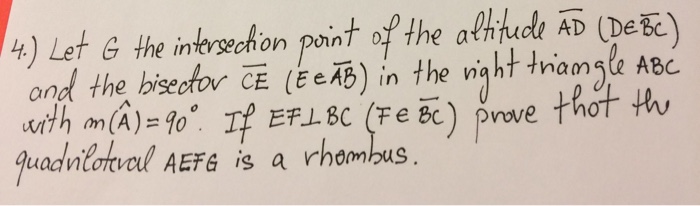 4.) Let G the intersection point of the altitude A̅D̅ (D∈B̅C̅)
and the bisector C̅E̅ (E∈A̅B̅) in the right triamgle ABC
with m(Â)=90°. If EF⊥BC (F∈B̅C̅) prove thot the
quadrilateral AEFG is a rhombus.